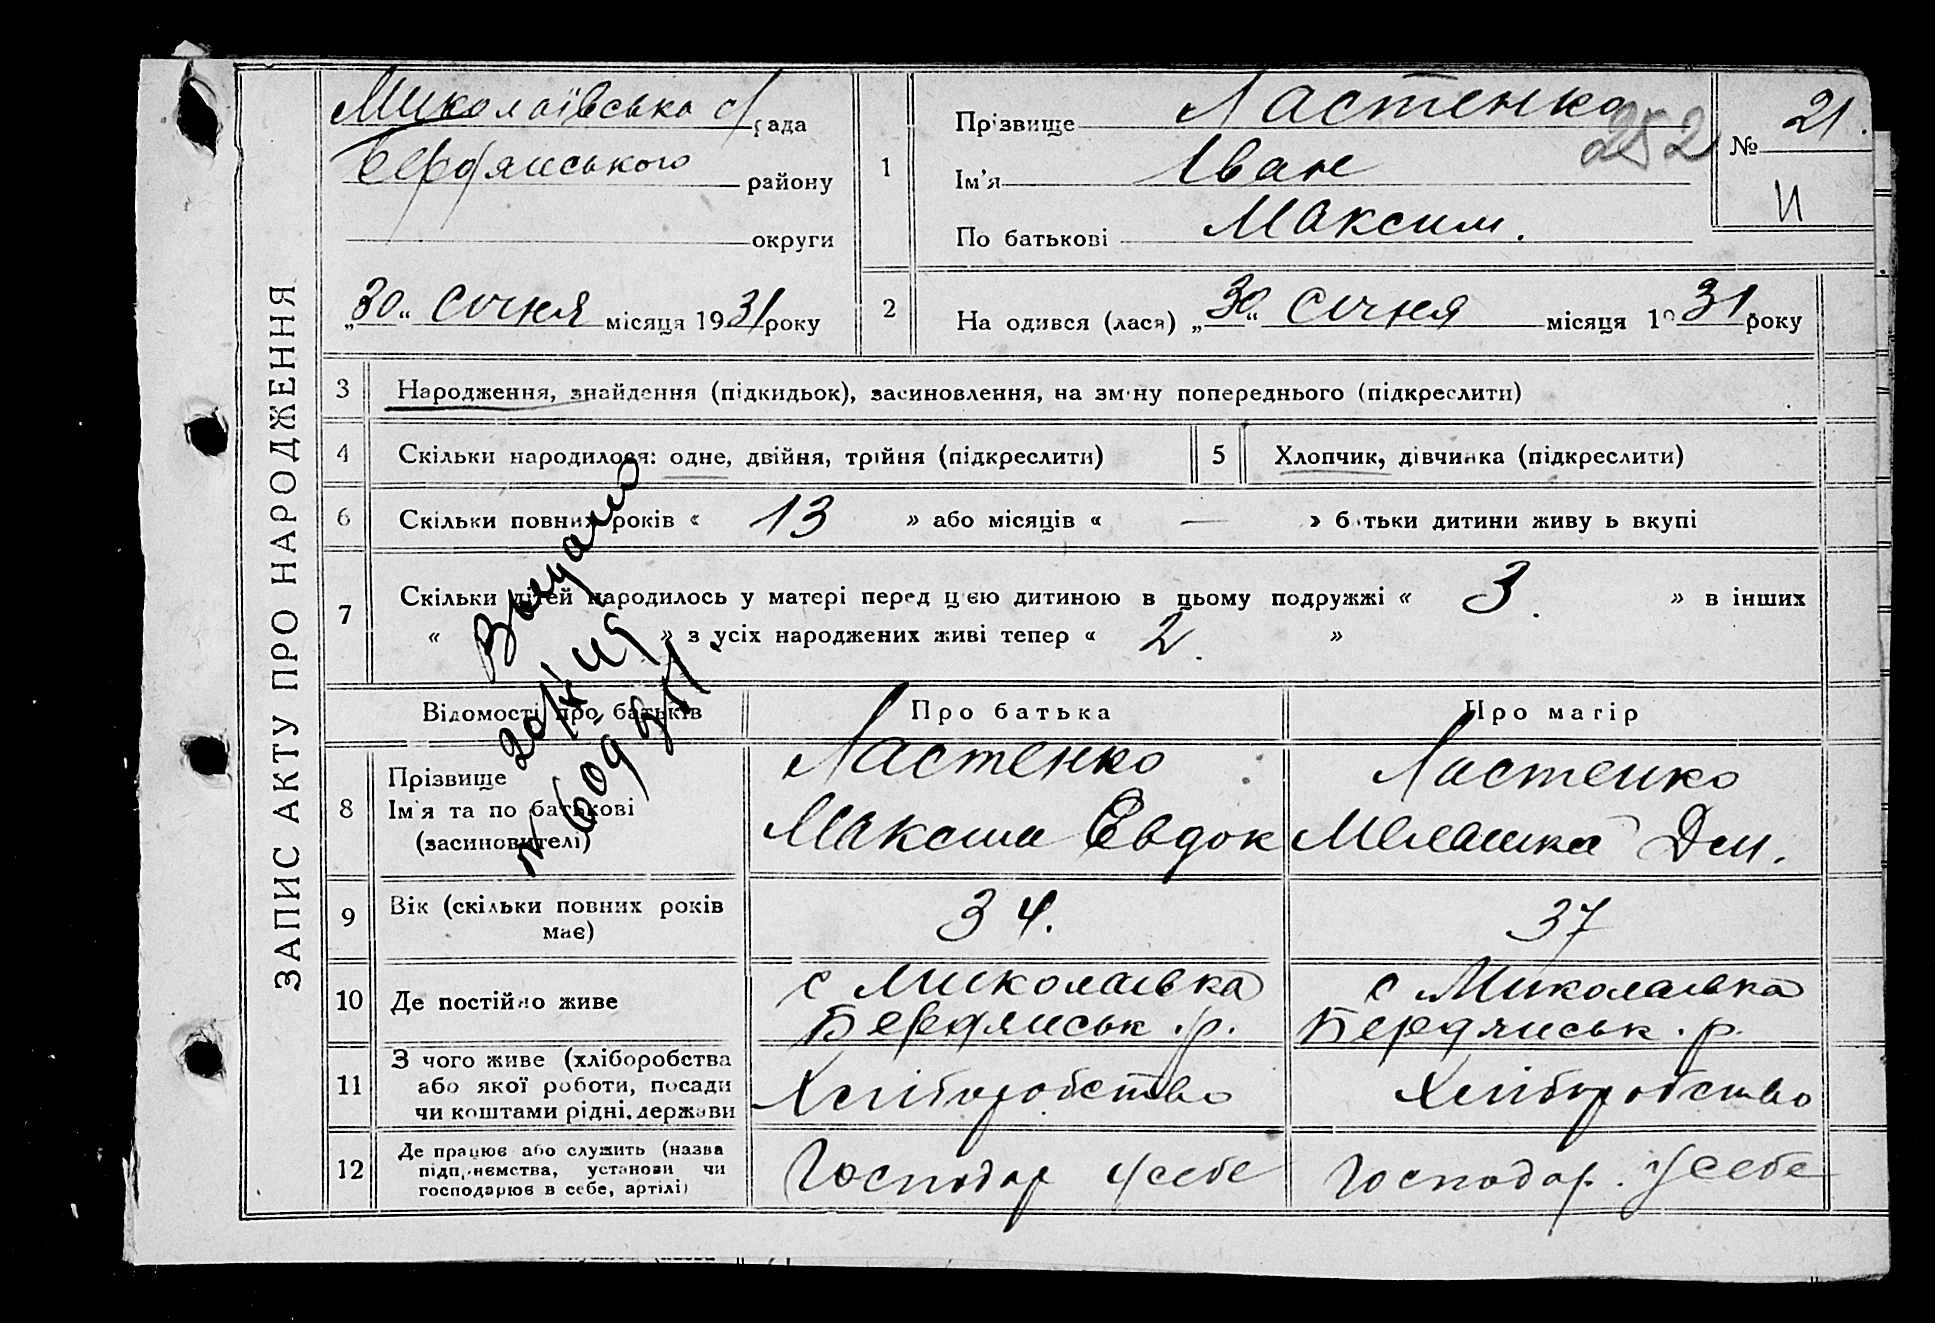 ЗАПИС АКТУ ПРО НАРОДЖЕННЯ
Миколаївська с/рада
Бердянського району
округи
„30“ січня місяця 1931 року
1
Прізвище Ластенко
Ім'я Іван
По батькові Максим.
252
№ 21.
И
2
На одився (лася) „30“ січня місяця 1931 року
3 Народження, знайдення (підкидьок), засиновлення, на зміну попереднього (підкреслити)
4 Скільки народилося: одне, двійня, трійня (підкреслити)
5 Хлопчик, дівчинка (підкреслити)
6 Скільки повних років « 13 » або місяців « — » батьки дитини живуть вкупі
7 Скільки дітей народилось у матері перед цією дитиною в цьому подружжі « 3. » в інших
« » з усіх народжених живі тепер « 2. »
Выдано
20/
№ 609
Відомості про батьків Про батька Про матір
8 Прізвище
Ім'я та по батькові
(засиновителі)
Ластенко
Максим Евдок
Ластенко
Мелашка Дем.
9 Вік (скільки повних років
має)
34.
37
10 Де постійно живе
с Миколаівка
Бердянськ. р.
с Миколаівка
Бердянськ. р.
11 З чого живе (хліборобства
або якої роботи, посади
чи коштами рідні, держави
Хліборобство
Хліборобство
12 Де працює або служить (назва
підприємства, установи чи
господарює в себе, артілі)
Господар у себе
Господар. у себе